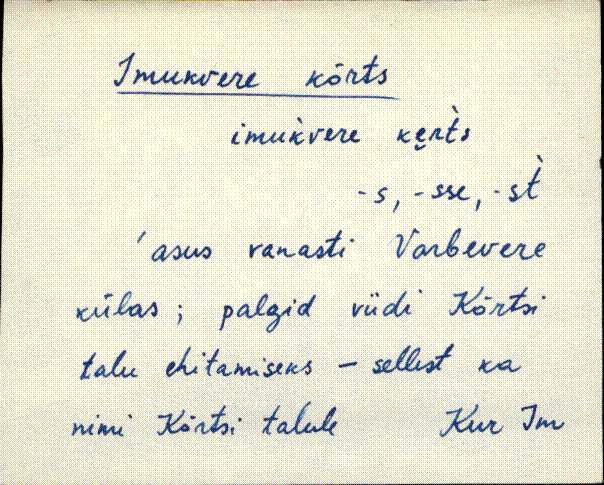 Imukvere kõrts
imuk̀vere ke̮rt̀s
-s, -sse, -st̀
'asus vanasti Vorbevere
külas; palgid viidi Kõrtsi
talu ehitamiseks – sellest ka
nimi Kõrtsi talule Kur Im